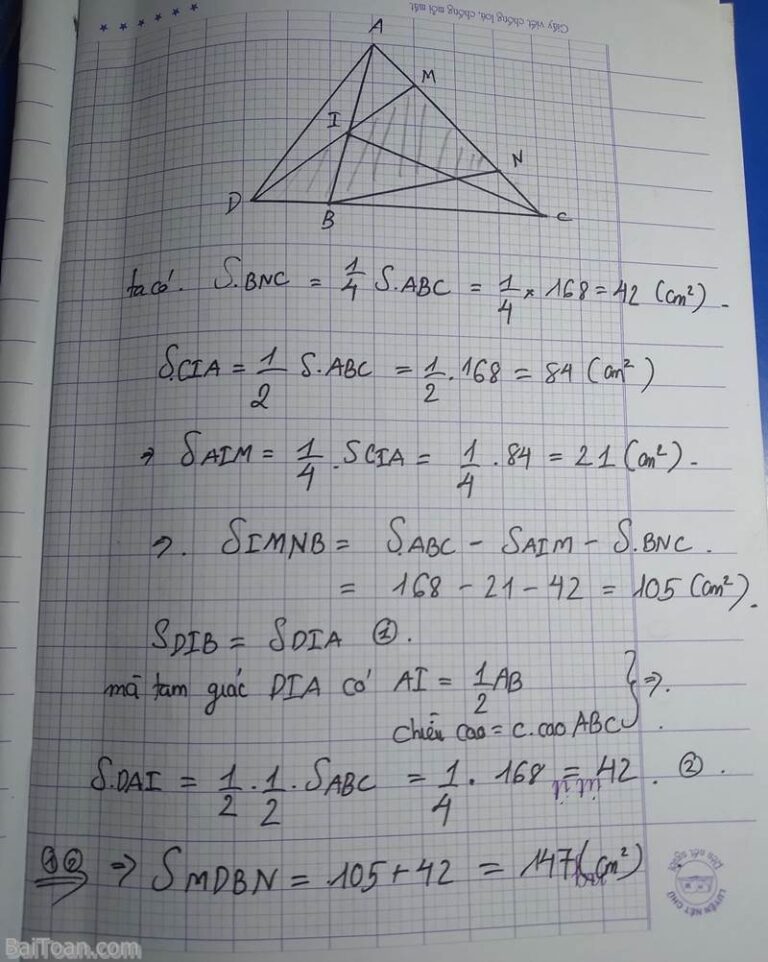 Giấy viết chống loá, chống mỏi mắt
A
M
I
N
D
B
C
ta có. S.BNC = 1/4 S.ABC = 1/4 × 168 = 42 (cm²) -
SCIA = 1/2 S.ABC = 1/2 . 168 = 84 (cm²)
⇒ SAIM = 1/4 . SCIA = 1/4 . 84 = 21 (cm²) -
⇒. SIMNB = S.ABC - SAIM - S.BNC.
= 168 - 21 - 42 = 105 (cm²).
SDIB = SDIA ①.
mà tam giác DIA có AI = 1/2 AB } ⇒.
chiều cao = c.cao ABC
S.DAI = 1/2 . 1/2 . SABC = 1/4 . 168 = 42. ② .
①② ⇒ SMDBN = 105 + 42 = 147 (cm²)
LUYỆN NÉT CHỮ
RÈN NẾT NGƯỜI
BaiToan.com